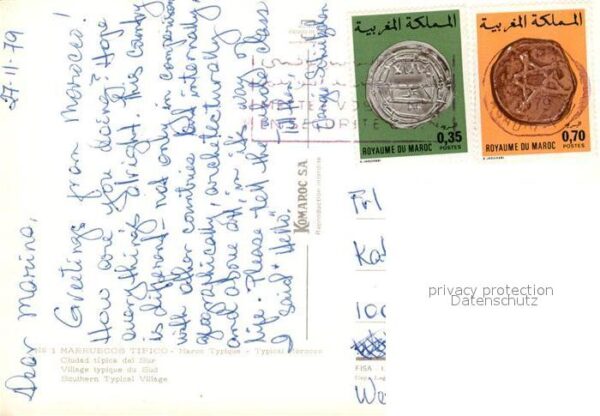 27-11-79
Dear Marina,
Greetings from Morocco!
How are you doing? Hope
everything's alright. This country
is different - not only in comparison
with other countries but internally,
geographically, architecturally
and above all, in its way of
life. Please tell the whole class
I said "Hello".
Till then,
المملكة المغربية
0,35
ROYAUME DU MAROC POSTES
المملكة المغربية
0,70
ROYAUME DU MAROC POSTES
KOMAROC SA
Reproduction interdite
Frl
Ka
100
We
privacy protection
Datenschutz
Nº 1 MARRUECOS TIPICO - Maroc Typique - Typical Morocco
Ciudad típica del Sur
Village typique du Sud
Southern Typical Village
FISA